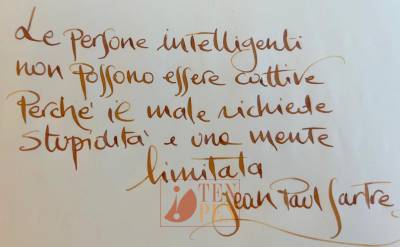 Le persone intelligenti
non possono essere cattive
Perché il male richiede
stupidità e una mente
limitata
Jean Paul Sartre
TEN
PEN